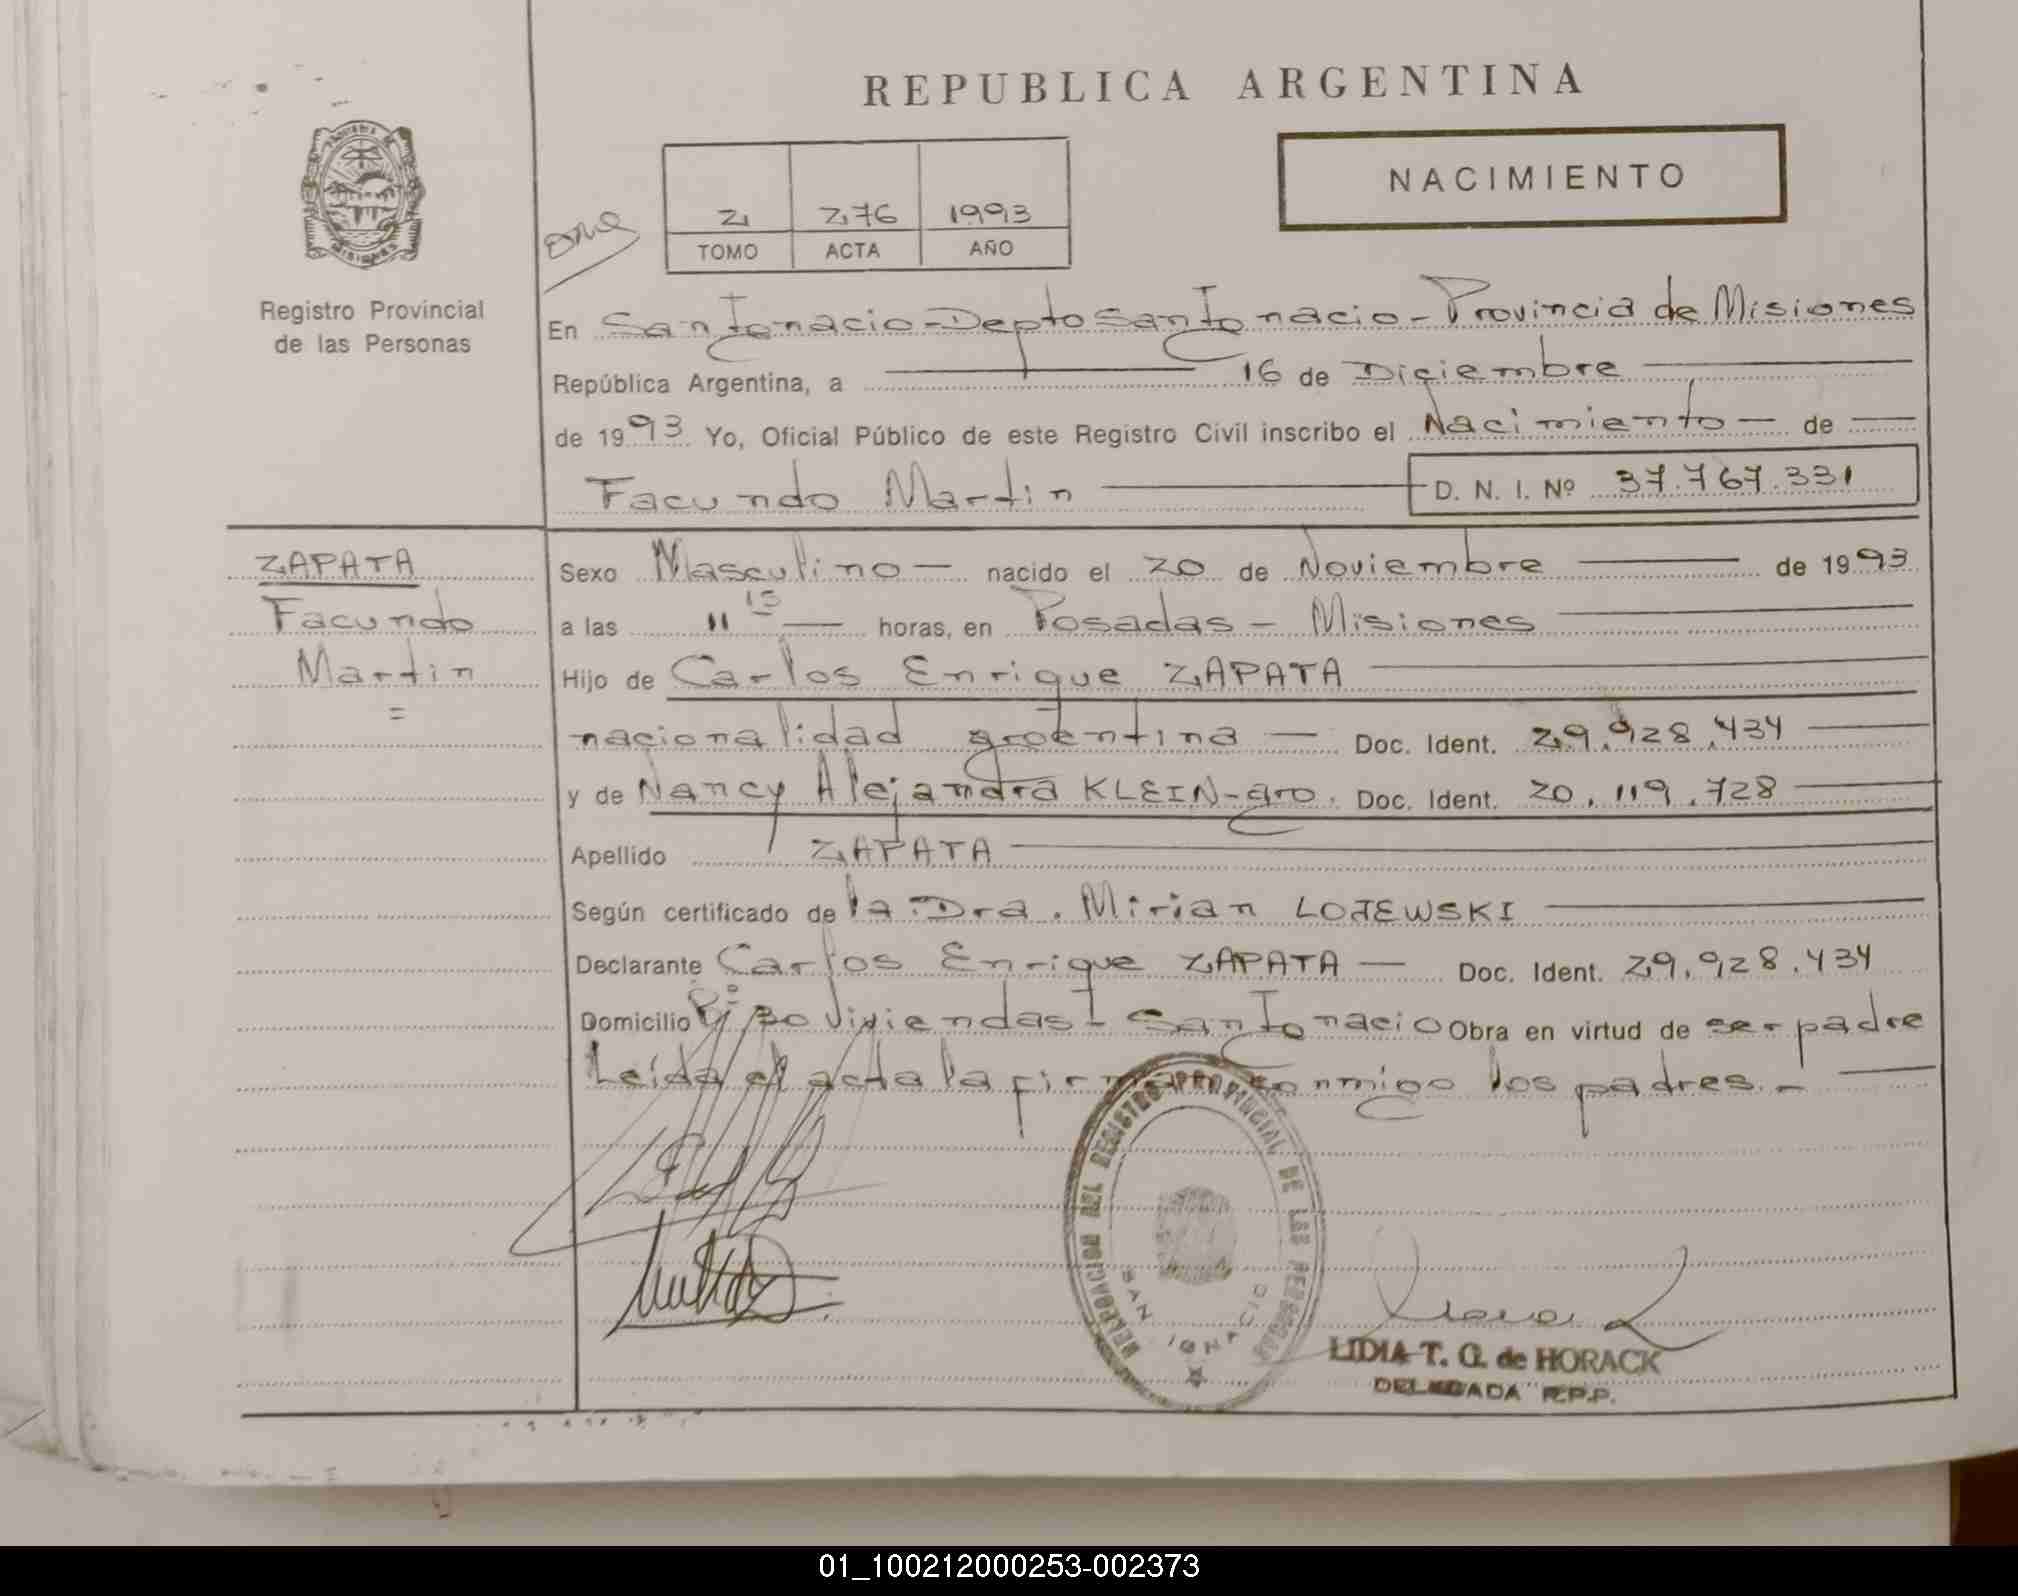 REPUBLICA ARGENTINA
NACIMIENTO
2 276 1993
TOMO ACTA AÑO
Registro Provincial
de las Personas
En San Ignacio - Depto San Ignacio - Provincia de Misiones
República Argentina, a 16 de Diciembre
de 1993. Yo, Oficial Público de este Registro Civil inscribo el Nacimiento de
Facundo Martin D. N. I. Nº 37.767.331
ZAPATA
Facundo
Martin
=
Sexo Masculino nacido el 20 de Noviembre de 1993
a las 11 15 horas, en Posadas - Misiones
Hijo de Carlos Enrique ZAPATA
nacionalidad argentina Doc. Ident. 29.928.434
y de Nancy Alejandra KLEIN - arg. Doc. Ident. 20.119.728
Apellido ZAPATA
Según certificado de la Dra. Mirian LOJEWSKI
Declarante Carlos Enrique ZAPATA Doc. Ident. 29.928.434
Domicilio Bº 30 Viviendas - San Ignacio Obra en virtud de ser padre
Leída el acta la firman conmigo los padres.-
DELEGACION DEL REGISTRO PROVINCIAL DE LAS PERSONAS
SAN IGNACIO
LIDIA T. G. de HORACK
DELEGADA R.P.P.
01_100212000253-002373